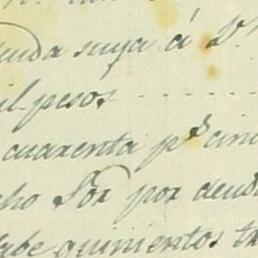 deuda suya á D.n
mil pesos
cuarenta p.s cinc
cho Sor por deuda
cabe quinientos tr